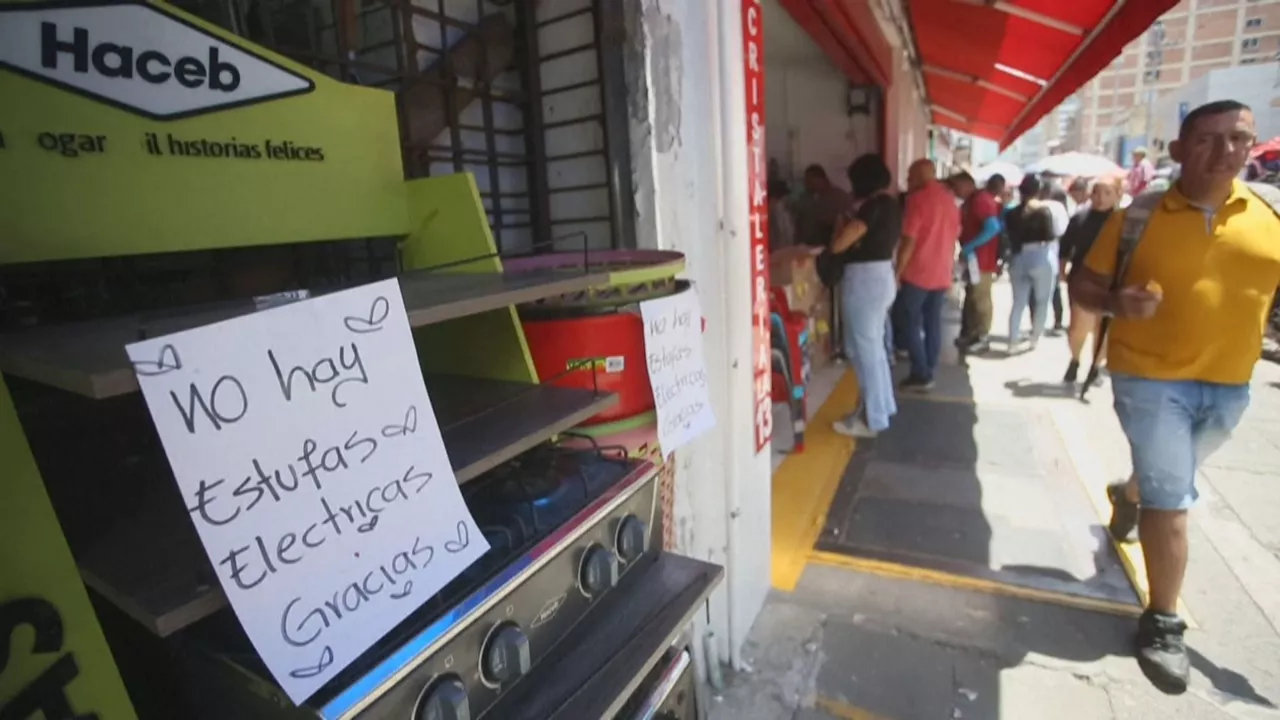 Haceb
ogar il historias felices
No hay
Estufas
Electricas
Gracias
No hay
Estufas
Electricas
Gracias
CRISTALERIA